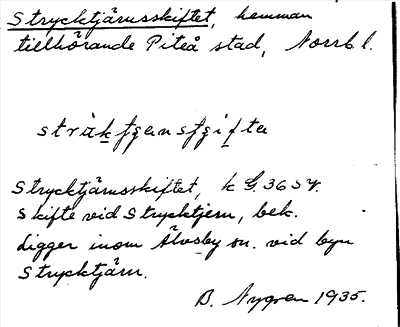 Strycktjärnsskiftet, hemman
tillhörande Piteå stad, Norrb l.
sträkfgensfgifta
Strycktjärnsskiftet, k G, 36 S V.
Skifte vid Strycktjern, bek.
Ligger inom Älvsby sn. vid byn
Strycktjärn.
B. Nygren 1935.